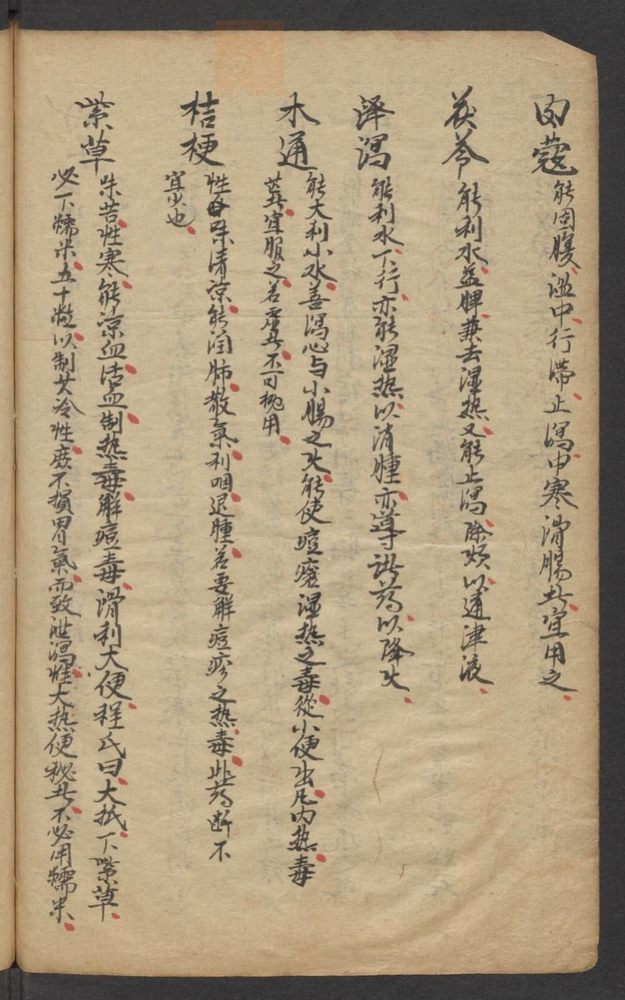 肉蔻 能固腹溫中行滯止瀉中寒滑腸者宜用之
茯苓 能利水益脾兼去湿热又能止瀉除煩以通津液
泽瀉 能利水下行亦能湿热以消腫亦導諸药以降火
木通 能大利小水善瀉心与小腸之火能使痘瘡湿热之毒從小便出凡内热毒
甚者宜服之若虛者不可概用
桔梗 性甘味清涼能润肺散氣利咽退腫若要解痘疹之热毒此药断不
宜少也
紫草 味苦性寒能涼血活血制热毒解痘毒滑利大便程氏曰大抵下紫草
必下糯米五十粒以制其冷性庶不損胃氣而致泄瀉惟大热便秘者不必用糯米